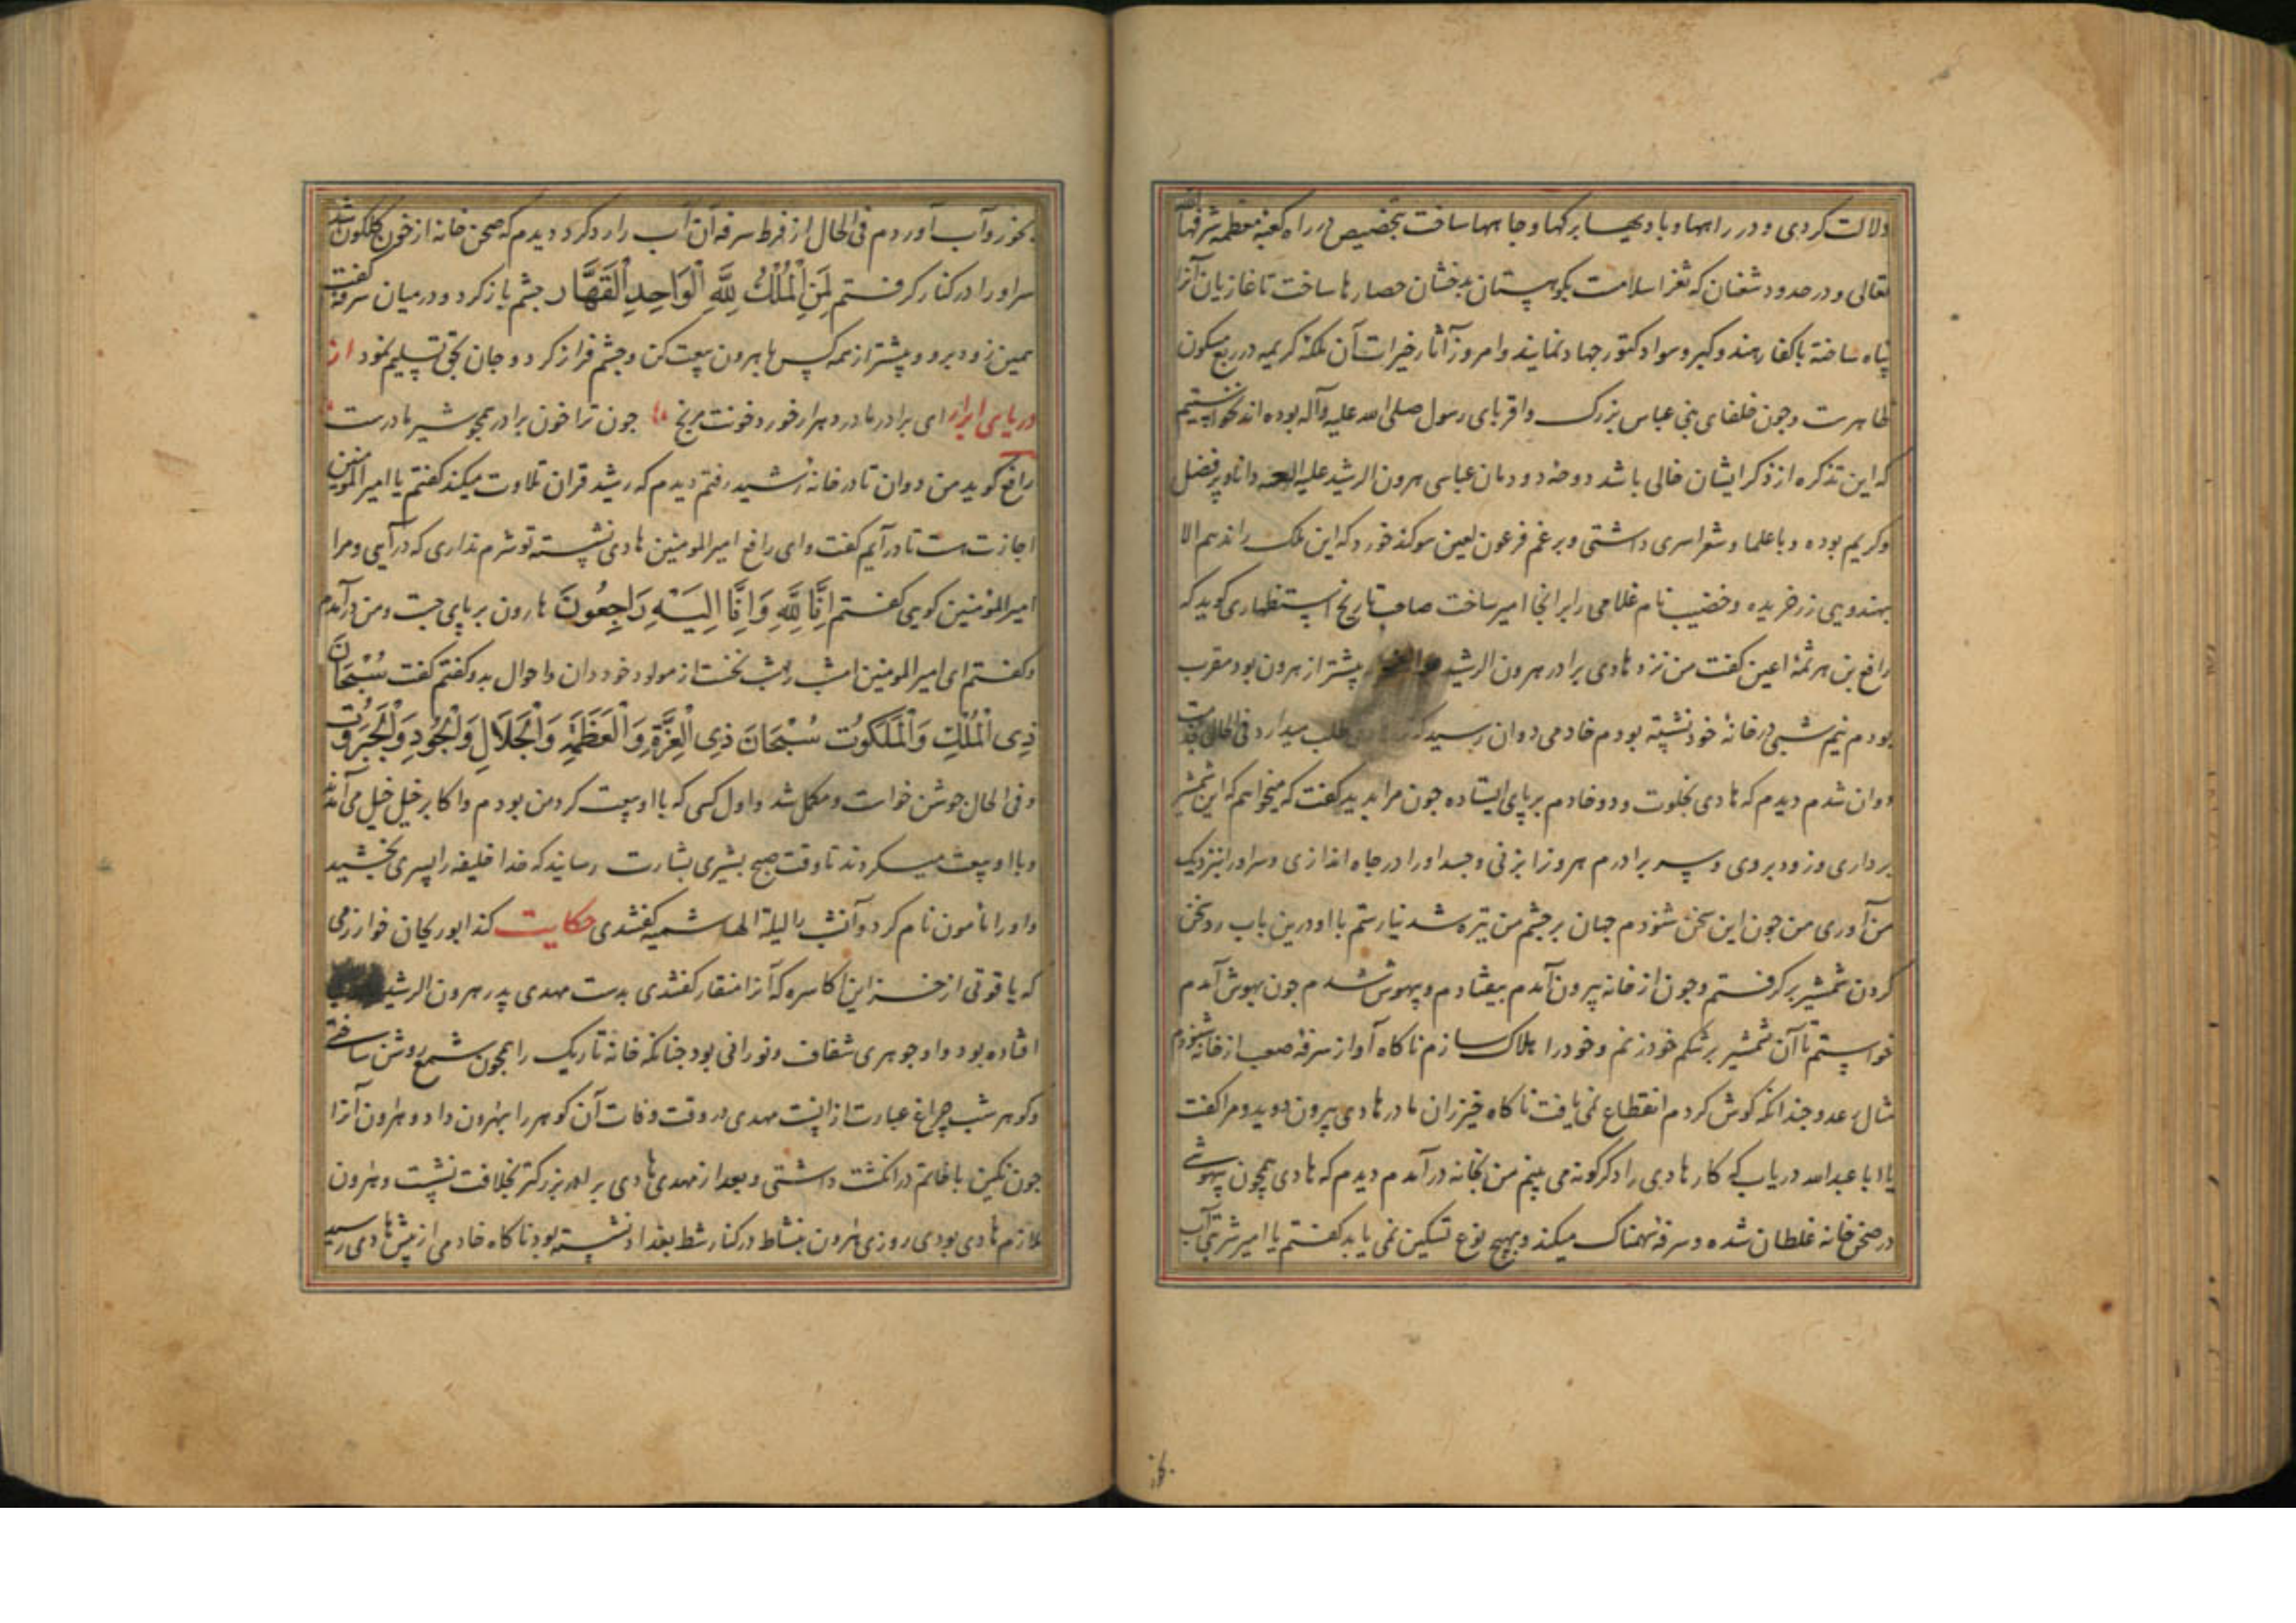 دلالت کردی و در راهها و بادیها برکها و چاهها ساخت بتخصیص در راه کعبه معظمه شرفها الله
تعالی و در حدود شغنان که ثغر اسلامست بکوهستان بدخشان حصارها ساخت تا غازیان آنرا
پناه ساخته با کفار هند و کبر و سواد کتور جهاد نمایند و امروز آثار خیرات آن ملکه کریمه در ربع مسکون
ظاهرست و چون خلفای بنی عباس بزرک و اقربای رسول صلی الله علیه و آله بوده اند نخواستیم
که این تذکره از ذکر ایشان خالی باشد دوحه دودمان عباسی هرون الرشید علیه دانا و پر فضل
و کریم بوده و با علما و شعرا سری داشتی و برغم فرعون لعین سوکند خورد که این ملک را ندهم الا
بهندویی زرخریده و خضیب نام غلامی را برانجا امیر ساخت صاحب تاریخ استظهاری کوید که
رافع بن هرثمه اعین کفت من نزد هادی برادر هرون الرشید پیشتر از هرون بود مقرب
بودم نیم شبی در خانه خود نشسته بودم خادمی دوان رسید که طلب میدارد فی الحال بخدمت
دوان شدم دیدم که هادی بخلوت و دو خادم بر پای ایستاده چون مرا بدید کفت که میخواهم که این شمشیر
برداری و زود بروی و سر برادرم هرون را بزنی و جسد او را در چاه اندازی و سر او را بنزدیک
من آوری من چون این سخن شنودم جهان بر چشم من تیره شد نیارستم با او درین باب رد سخن
کردن شمشیر برکرفتم و چون از خانه بیرون آمدم بیفتادم و بیهوش شدم چون بهوش آمدم
خواستم تا آن شمشیر بر شکم خود زنم و خود را هلاک سازم ناکاه آواز سرفه صعب از خانه شنودم
مثال رعد و چندانکه کوش کردم انقطاع نمی یافت ناکاه خیزران مادر هادی بیرون دوید و مرا کفت
یا ابا عبدالله دریاب که کار هادی را دکرکونه می بینم من بخانه درآمدم دیدم که هادی همچون بیهوشی
در صحن خانه غلطان شده و سرفه سهمناک میکند و بهیچ نوع تسکین نمی یابد کفتم یا امیر شربتی آب
بخور
بخور و آب آوردم فی الحال از فرط سرفه آن آب را رد کرد و دیدم که صحن خانه از خون کلکون شد
سر او را در کنار کرفتم لِمَنِ الْمُلْكُ لِلَّهِ الْوَاحِدِ الْقَهَّار چشم باز کرد و در میان سرفه کفت
همین زود برو و پیشتر از همه کس با هرون بیعت کن و چشم فراز کرد و جان بحق تسلیم نمود از
دریای ابرار ای برادر مادر دهر ار خورد خونت مرنج چون ترا خون برادر همچو شیر مادرست
رافع کوید من دوان تا در خانه رشید رفتم دیدم که رشید قران تلاوت میکند کفتم یا امیرالمومنین
اجازت هست تا درآیم کفت وای رافع امیرالمومنین هادی نشسته تو شرم نداری که درآیی و مرا
امیرالمومنین کویی کفتم اِنَّا لِلَّهِ وَاِنَّا اِلَيْهِ رَاجِعُونَ هارون بر پای جست و من درآمدم
و کفتم ای امیرالمومنین امشب شب نخست از مولود خود دان و احوال بدو کفتم کفت سُبْحَانَ
ذِی الْمُلْكِ وَالْمَلَكُوتْ سُبْحَانَ ذِی الْعِزَّةِ وَالْعَظَمَةِ وَالْجَلَالِ وَالْجُودِ وَالْجَبَرُوتْ
و فی الحال جوشن خواست و مکمل شد و اول کسی که با او بیعت کرد من بودم و اکابر خیل خیل می آمدند
و با او بیعت میکردند تا وقت صبح بشیری بشارت رسانید که خدا خلیفه را پسری بخشید
و او را مأمون نام کرد و آنشب را لیلة الهاشمیه کفتندی حکایت کند ابوریحان خوارزمی
که یاقوتی از خزاین اکاسره که آنرا منقار کفتندی بدست مهدی پدر هرون الرشید
افتاده بود و او جوهری شفاف و نورانی بود چنانکه خانه تاریک را همچون شمع روشن ساختی
و کوهر شب چراغ عبارت از اینست مهدی در وقت وفات آن کوهر را بهرون داد و هرون آنرا
چون نکین با خاتم در انکشت داشتی و بعد از مهدی هادی برادر بزرکتر بخلافت نشست و هرون
ملازم هادی بودی روزی هرون بنشاط در کنار شط بغداد نشسته بود ناکاه خادمی از پیش هادی رسید